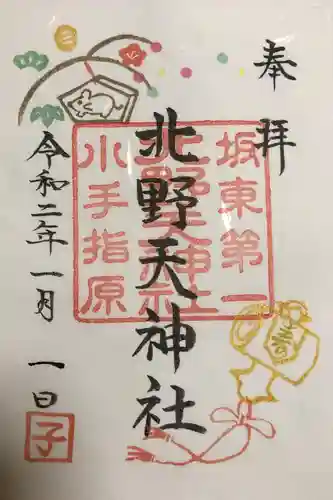 奉拝
坂東第一
北野天神社
小手指原
北野天神社
令和二年一月一日
子